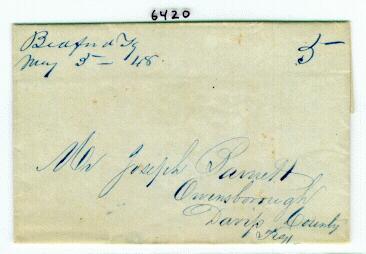 6420
Bedford Ky
May 5 - 48.
5
Mr Joseph Barnett
Owensborough
Davis County
Key.